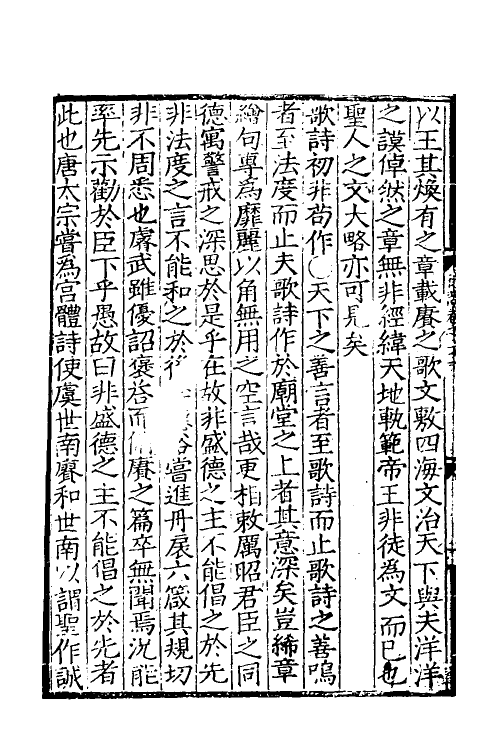 以王其煥有之章載賡之歌文敷四海文治天下與夫洋洋
之謨倬然之章無非經緯天地軌範帝王非徒為文而已也
聖人之文大略亦可見矣
歌詩初非苟作〇天下之善言者至歌詩而止歌詩之善鳴
者至法度而止夫歌詩作於廟堂之上者其意深矣豈絺章
繪句專為靡麗以角無用之空言哉更相敕厲昭君臣之同
德寓警戒之深思於是乎在故非盛德之主不能倡之於先
非法度之言不能和之於後 裕嘗進丹扆六箴其規切
非不周悉也睿武雖優詔褒荅而 賡之篇卒無聞焉況能
率先示勸於臣下乎愚故曰非盛德之主不能倡之於先者
此也唐太宗嘗為宫體詩使虞世南賡和世南以謂聖作誠